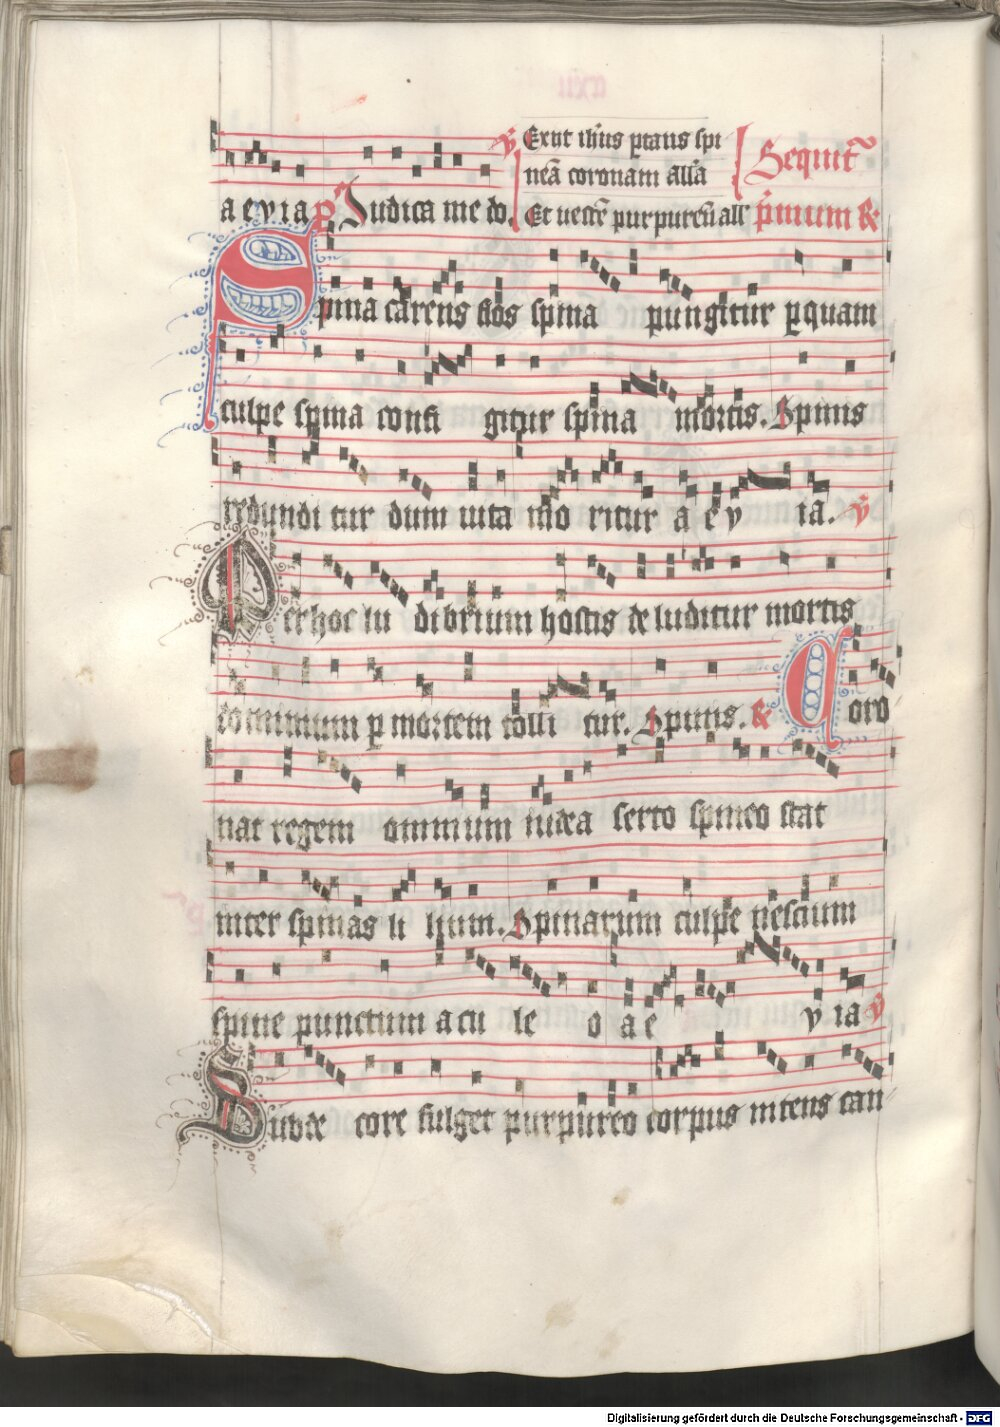 Exiit ihus portans spi
neā coronam alla
Sequitr
a e v i a ps Iudica me do. Et vestē purpureū all primum R
Spina carens flos spina pungitur p quam
culpe spina confi gitur spina mortis. Spinis
retundi tur dum vita mo ritur a e v ia. V
Per hoc lu dibrium hostis de luditur mortis
dominium p mortem tolli tur. Spinis. R Coro
nat regem omnium iudea serto spineo stat
inter spinas li lium. Spinarum culpe nescium
spine punctum acu le o a e v ia V
Sudde core fulget purpureo corpus nitens can
Digitalisierung gefördert durch die Deutsche Forschungsgemeinschaft - DFG